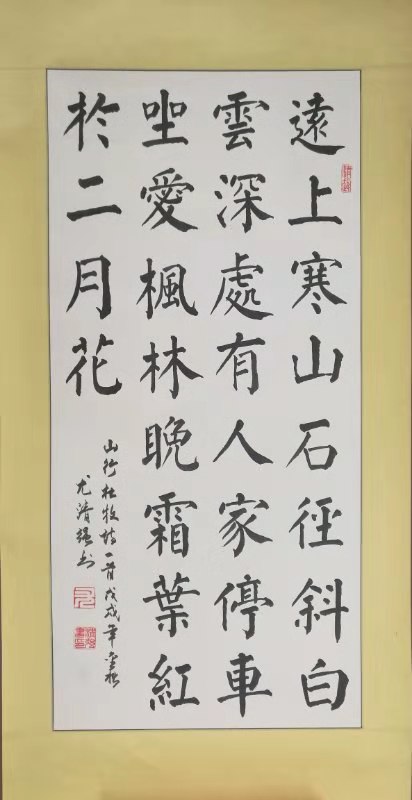 遠上寒山石徑斜白
雲深處有人家停車
坐愛楓林晚霜葉紅
於二月花
山行杜牧詩一首戊戌年金秋
尤清强书